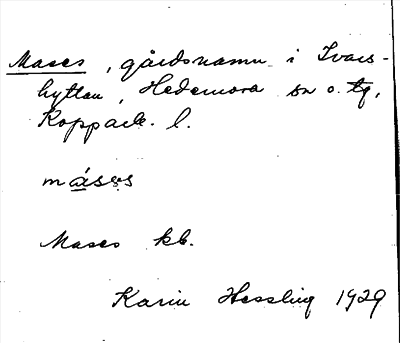 Mases, gårdsnamn i Ivars-
hyttan, Hedemora sn o. tg,
Kopparb. l.
Mases kb.
Karin Hessling 1929